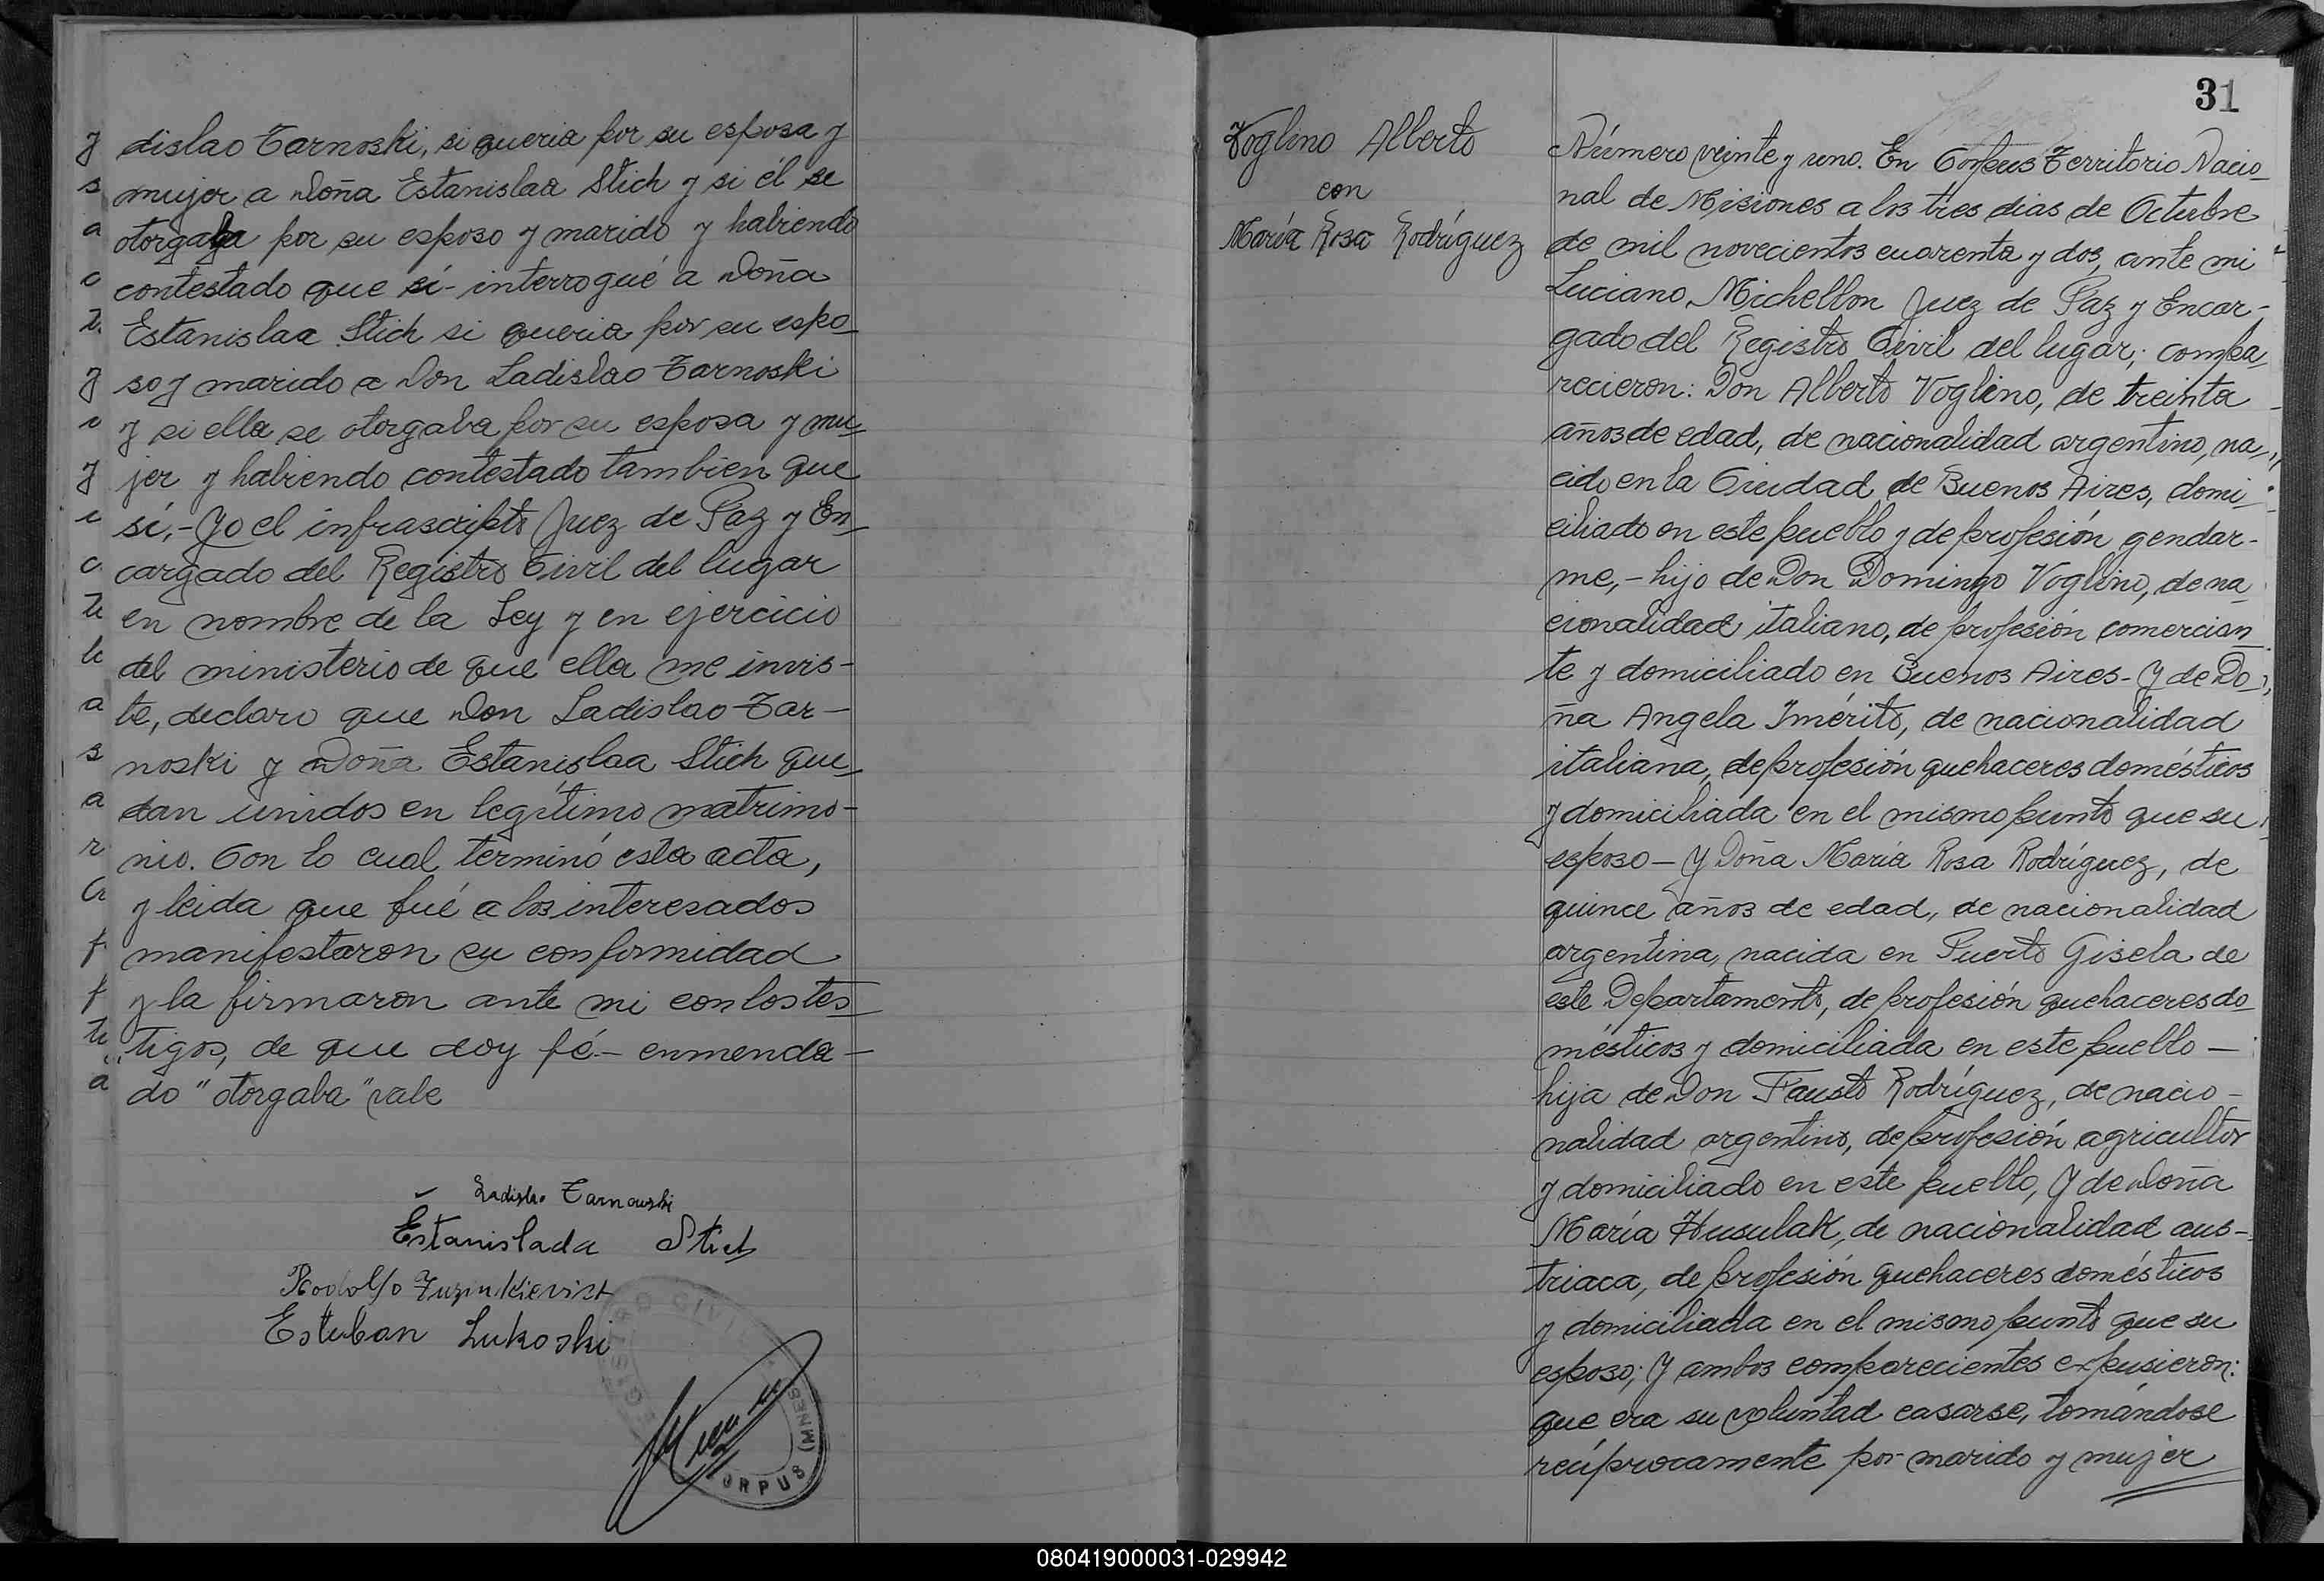 dislao Tarnoski, si queria por su esposa y
mujer a Doña Estanislaa Stich y si él se
otorgaba por su esposo y marido y habiendo
contestado que sí- interrogué a Doña
Estanislaa Stich si queria por su espo_
so y marido a Don Ladislao Tarnoski
y si ella se otorgaba por su esposa y mu_
jer y habiendo contestado tambien que
sí,- Yo el infrascripto Juez de Paz y En_
cargado del Registro Civil del lugar
en nombre de la Ley y en ejercicio
del ministerio de que ella me invis-
te, declaro que Don Ladislao Tar-
noski y Doña Estanislaa Stich que_
dan unidos en legítimo matrimo-
nio. Con lo cual terminó esta acta,
y leida que fué a los interesados
manifestaron su conformidad
y la firmaron ante mi con los tes_
tigos, de que doy fé.- enmenda-
do "otorgaba" vale
Ladislao Tarnowski
Estanislada Stich
Rodolfo
Esteban Lukoski
CORPUS (MNES
31
Voglino Alberto
con
María Rosa Rodríguez
Número veinte y uno. En Corpus Territorio Nacio_
nal de Misiones a los tres dias de Octubre
de mil novecientos cuarenta y dos, ante mi
Luciano Michellon Juez de Paz y Encar-
gado del Registro Civil del lugar; compa_
recieron: Don Alberto Voglino, de treinta
años de edad, de nacionalidad argentino, na_
cido en la Ciudad de Buenos Aires, domi_
ciliado en este pueblo y de profesión gendar-
me,- hijo de Don Domingo Voglino, de na_
cionalidad italiano, de profesión comercian_
te y domiciliado en Buenos Aires- Y de Do_
ña Angela Imérito, de nacionalidad
italiana, de profesión quehaceres domésticos
y domiciliada en el mismo punto que su
esposo- Y Doña María Rosa Rodríguez, de
quince años de edad, de nacionalidad
argentina, nacida en Puerto Gisela de
este Departamento, de profesión quehaceres do_
mésticos y domiciliada en este pueblo-
hija de Don Fausto Rodríguez, de nacio-
nalidad argentino, de profesión agricultor
y domiciliado en este pueblo, Y de Doña
María Husulak, de nacionalidad aus-
triaca, de profesión quehaceres domésticos
y domiciliada en el mismo punto que su
esposo; Y ambos comparecientes expusieron:
que era su voluntad casarse, tomándose
recíprocamente por marido y mujer
080419000031-029942